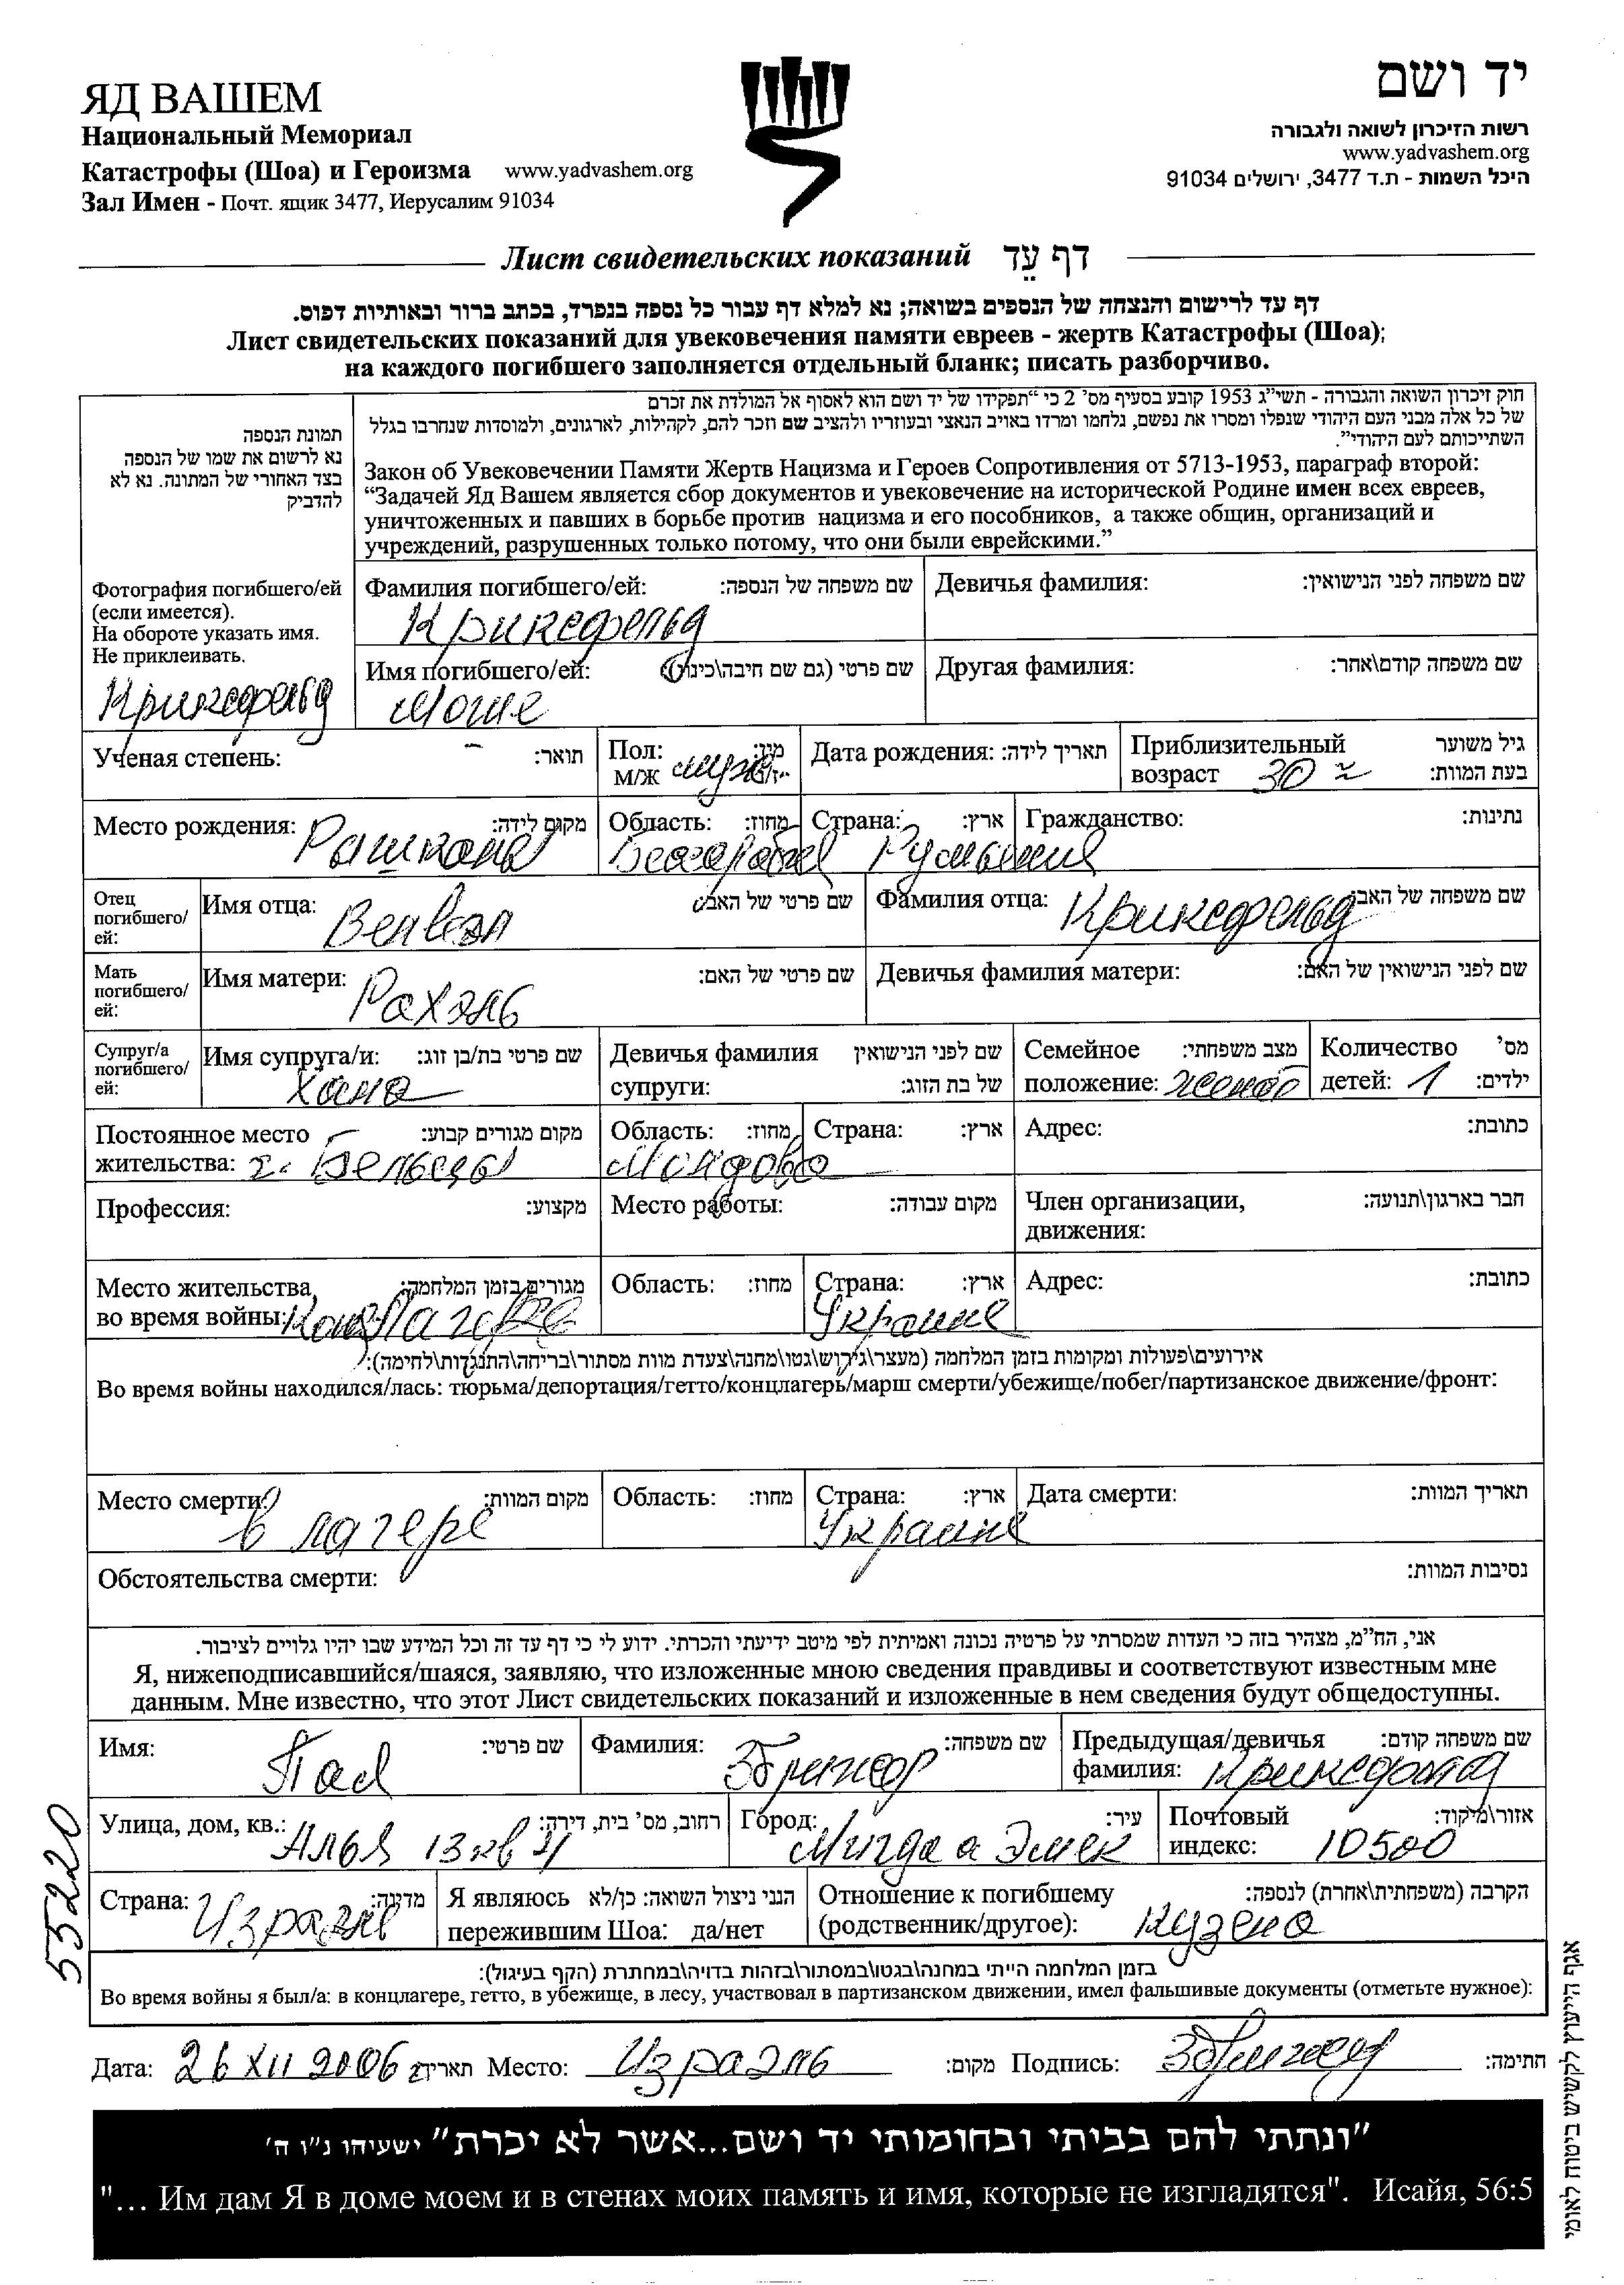 ЯД ВАШЕМ
Национальный Мемориал
Катастрофы (Шоа) и Героизма www.yadvashem.org
Зал Имен - Почт. ящик 3477, Иерусалим 91034
יד ושם
רשות הזיכרון לשואה ולגבורה
www.yadvashem.org
היכל השמות - ת.ד 3477, ירושלים 91034
Лист свидетельских показаний דף עֵד
דף עד לרישום והנצחה של הנספים בשואה; נא למלא דף עבור כל נספה בנפרד, בכתב ברור ובאותיות דפוס.
Лист свидетельских показаний для увековечения памяти евреев - жертв Катастрофы (Шоа);
на каждого погибшего заполняется отдельный бланк; писать разборчиво.
תמונת הנספה
נא לרשום את שמו של הנספה
בצד האחורי של המתונה. נא לא
להדביק
Фотография погибшего/ей
(если имеется).
На обороте указать имя.
Не приклеивать.
Криксфельд
חוק זיכרון השואה והגבורה - תשי"ג 1953 קובע בסעיף מס' 2 כי "תפקידו של יד ושם הוא לאסוף אל המולדת את זכרם
של כל אלה מבני העם היהודי שנפלו ומסרו את נפשם, נלחמו ומרדו באויב הנאצי ובעוזריו ולהציב שם וזכר להם, לקהילות, לארגונים, ולמוסדות שנחרבו בגלל
השתייכותם לעם היהודי".
Закон об Увековечении Памяти Жертв Нацизма и Героев Сопротивления от 5713-1953, параграф второй:
"Задачей Яд Вашем является сбор документов и увековечение на исторической Родине имен всех евреев,
уничтоженных и павших в борьбе против нацизма и его пособников, а также общин, организаций и
учреждений, разрушенных только потому, что они были еврейскими."
Фамилия погибшего/ей: שם משפחה של הנספה:
Криксфельд
Девичья фамилия: שם משפחה לפני הנישואין:
Имя погибшего/ей: שם פרטי (גם שם חיבה\כינוי):
Моше
Другая фамилия: שם משפחה קודם\אחר:
Ученая степень: – תואר:
Пол: מין:
М/Ж муж ז/נ
Дата рождения: תאריך לידה:
Приблизительный גיל משוער
возраст 30 בעת המוות:
Место рождения: Рашканы מקום לידה:
Область: מחוז:
Бессарабия
Страна: ארץ:
Румыния
Гражданство: נתינות:
Отец
погибшего/
ей:
Имя отца: Велвел שם פרטי של האב:
Фамилия отца: Криксфельд שם משפחה של האב:
Мать
погибшего/
ей:
Имя матери: Рахэль שם פרטי של האם:
Девичья фамилия матери: שם לפני הנישואין של האם:
Супруг/а
погибшего/
ей:
Имя супруга/и: שם פרטי בת/בן זוג:
Хана
Девичья фамилия שם לפני הנישואין
супруги: של בת הזוג:
Семейное מצב משפחתי:
положение: женат
Количество מס'
детей: 1 ילדים:
Постоянное место מקום מגורים קבוע:
жительства: г. Бельцы
Область: מחוז:
Молдова
Страна: ארץ:
Адрес: כתובת:
Профессия: מקצוע:
Место работы: מקום עבודה:
Член организации, חבר בארגון\תנועה:
движения:
Место жительства מגורים בזמן המלחמה:
во время войны: Концлагере
Область: מחוז:
Страна: ארץ:
Украине
Адрес: כתובת:
אירועים\פעולות ומקומות בזמן המלחמה (מעצר\גירוש\גטו\מחנה\צעדת מוות מסתור\בריחה\התנגדות\לחימה):
Во время войны находился/лась: тюрьма/депортация/гетто/концлагерь/марш смерти/убежище/побег/партизанское движение/фронт:
Место смерти: מקום המוות:
в лагере
Область: מחוז:
Страна: ארץ:
Украине
Дата смерти: תאריך המוות:
Обстоятельства смерти: נסיבות המוות:
אני, הח"מ, מצהיר בזה כי העדות שמסרתי על פרטיה נכונה ואמיתית לפי מיטב ידיעתי והכרתי. ידוע לי כי דף עד זה וכל המידע שבו יהיו גלויים לציבור.
Я, нижеподписавшийся/шаяся, заявляю, что изложенные мною сведения правдивы и соответствуют известным мне
данным. Мне известно, что этот Лист свидетельских показаний и изложенные в нем сведения будут общедоступны.
Имя: שם פרטי:
Фамилия: שם משפחה:
Предыдущая/девичья שם משפחה קודם:
фамилия: Криксфельд
Улица, дом, кв.: רחוב, מס' בית, דירה:
Город: Мигдал Эмек עיר:
Почтовый אזור\מיקוד:
индекс: 10500
Страна: Израэль מדינה:
Я являюсь הנני ניצול השואה: כן/לא
пережившим Шоа: да/нет
Отношение к погибшему הקרבה (משפחתית\אחרת) לנספה:
(родственник/другое): кузена
בזמן המלחמה הייתי במחנה\בגטו\במסתור\בזהות בדויה\במחתרת (הקף בעיגול):
Во время войны я был/а: в концлагере, гетто, в убежище, в лесу, участвовал в партизанском движении, имел фальшивые документы (отметьте нужное):
Дата: 26 XII 2006 תאריך Место: Израэль מקום: Подпись: חתימה:
"ונתתי להם בביתי ובחומותי יד ושם...אשר לא יכרת" ישעיהו נ"ו ה'
"... Им дам Я в доме моем и в стенах моих память и имя, которые не изгладятся". Исайя, 56:5
55220
אגף הייעוץ לקשיש ביטוח לאומי